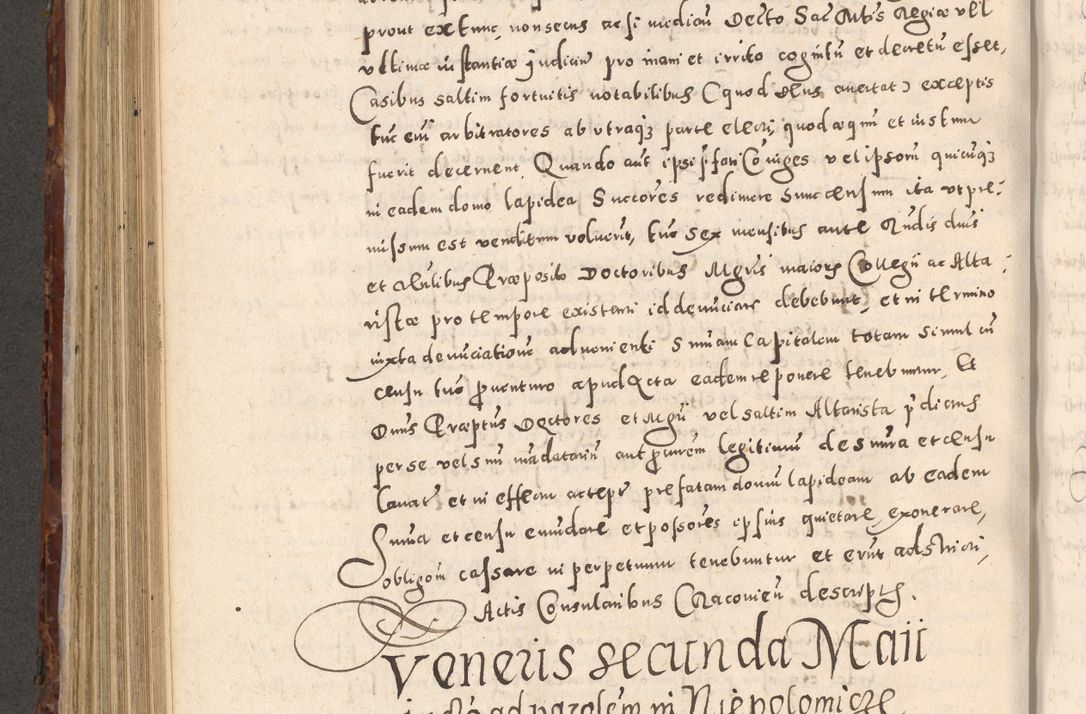 prout ex tunc, non secus ac si iudiciũ Dicto Sac Mtis Regiæ vel
vltimæ instantiæ Judiciũ pro inani et irrito cognitũ et decretũ esset,
Casibus saltim fortuitis notabilibus (quod Deus auertat) exceptis
tuc eni arbitratores ab vtraqȝ parte electi, quod æquũ et iustum
fuerit decernent. Quando aut ipsi p̃fati Cõiuges vel ipsorũ quicuqȝ
in eadem domo lapidea Succores redimere Sum censum ita vt pre:
missum est venditum voluerit, tuc sex mensibus ante Rndis duis
et Præposito Doctoribus Mgris maioris Collegii ac Alta:
ristæ pro tempore existeni id denũciare debebunt, et in termino
iuxta denũciatione advenienti Sumam Capitalem totam simul cũ
censu tuc prouenturo apud Acta eadem reponere tenebuntur. Et
Dnus Præptus Doctores et Mgri vel saltim Altarista p̃dictus
per se vel suũ mãdatariũ aut procurem legitimũ de suma et censu
leuatis et in effectu acceptis prefatam domũ lapideam ab eadem
Suma et censu emũdare et possores ipsius quietare, exonerare,
obligom cassare in perpetuum tenebuntur et erũt adstricti,
Actis Consularibus Cracovien descriptis.
Veneris secunda Maii
ad in Niepolomicze